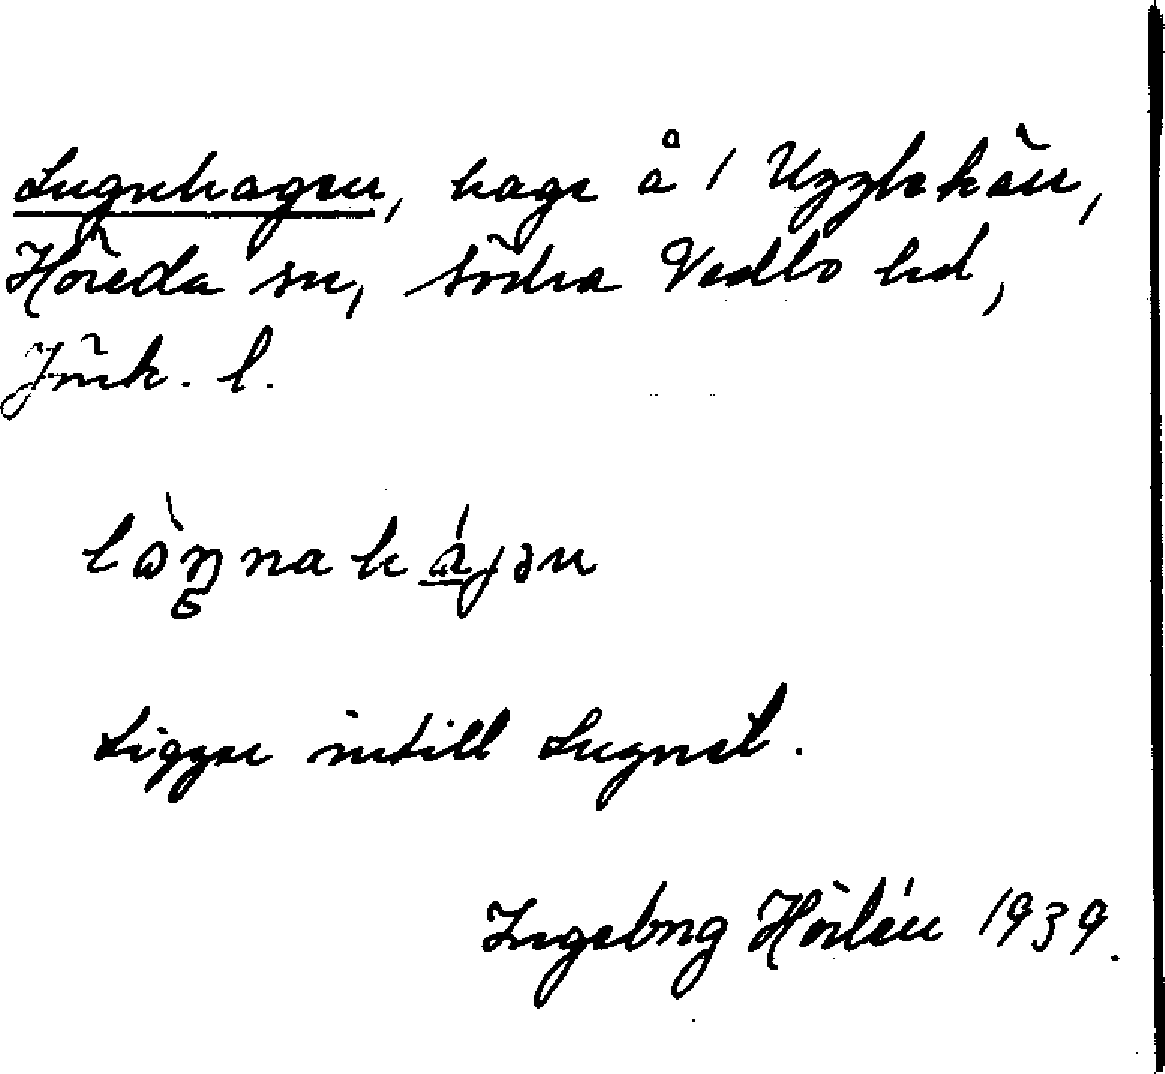 Lugnehagen, hage å 1 Ugglekärr,
Höreda sn, Södra Vedbo hd,
Jönk. l.
Ligger intill Lugnet.
Ingeborg Hörlén 1939.